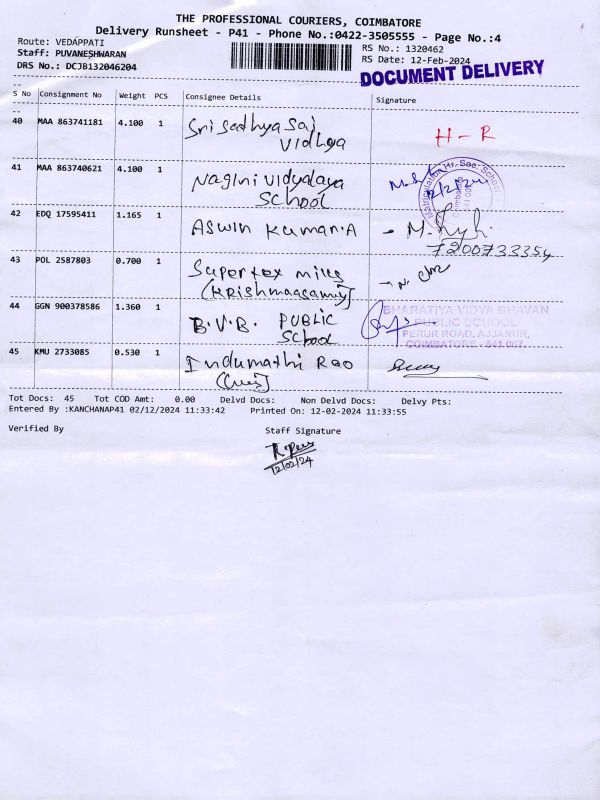 THE PROFESSIONAL COURIERS, COIMBATORE
Delivery Runsheet - P41 - Phone No.:0422-3505555 - Page No.:4
Route: VEDAPPATI
Staff: PUVANESHWARAN
DRS No.: DCJB132046204
RS No.: 1320462
RS Date: 12-Feb-2024
DOCUMENT DELIVERY
S No Consignment No Weight PCS Consignee Details Signature
40 MAA 863741181 4.100 1 Sri Sadhya Sai Vidhya H-R
41 MAA 863740621 4.100 1 Nagini Vidyalaya School
Matriculation Hr. Sec. School
42 EDQ 17595411 1.165 1 Aswin Kumar.A
7200733354
43 POL 2587803 0.700 1 Supertex mills
(Krishnaasamy)
44 GGN 900378586 1.360 1 B.V.B. PUBLIC School
BHARATIYA VIDYA BHAVAN
PUBLIC SCHOOL
PERUR ROAD, AJJANUR,
COIMBATORE - 641 007.
45 KMU 2733085 0.530 1 Indumathi Rao
Tot Docs: 45 Tot COD Amt: 0.00 Delvd Docs: Non Delvd Docs: Delvy Pts:
Entered By :KANCHANAP41 02/12/2024 11:33:42 Printed On: 12-02-2024 11:33:55
Verified By Staff Signature
12/02/24